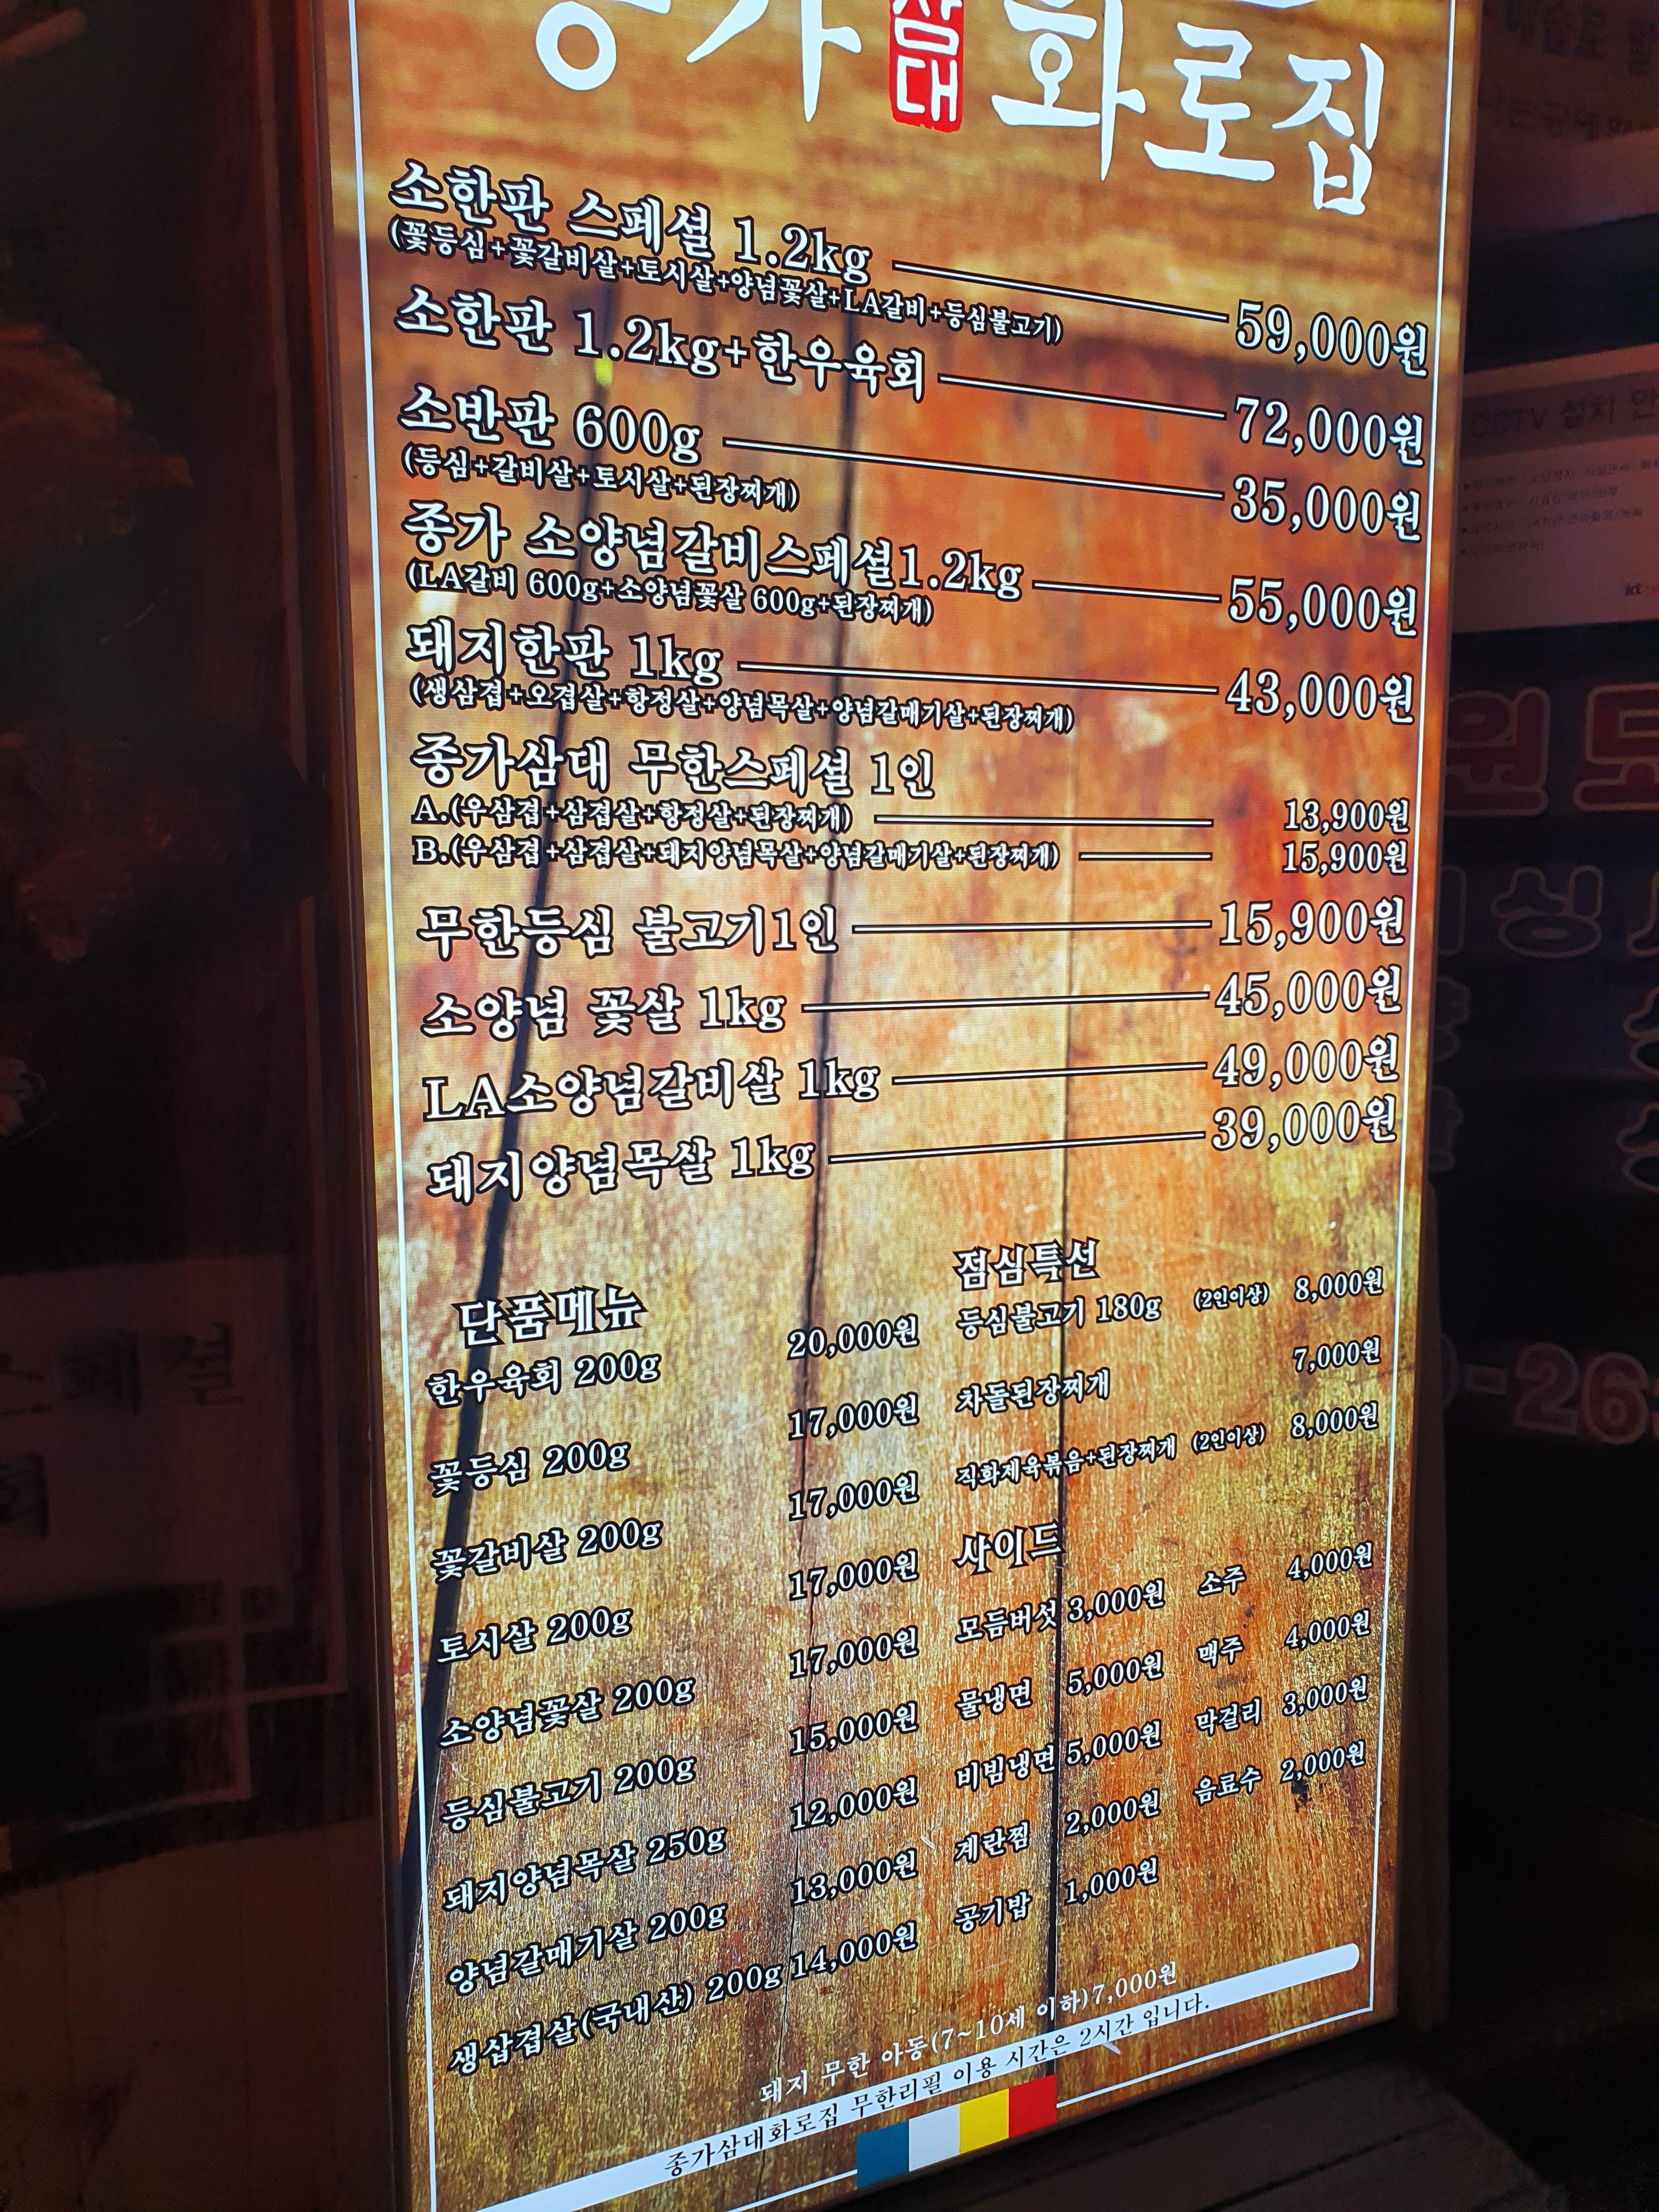 종가 삼대 화로집
소한판 스페셜 1.2kg 59,000원
(꽃등심+꽃갈비살+토시살+양념꽃살+LA갈비+등심불고기)
소한판 1.2kg+한우육회 72,000원
소반판 600g 35,000원
(등심+갈비살+토시살+된장찌개)
종가 소양념갈비스페셜1.2kg 55,000원
(LA갈비 600g+소양념꽃살 600g+된장찌개)
돼지한판 1kg 43,000원
(생삼겹+오겹살+항정살+양념목살+양념갈매기살+된장찌개)
종가삼대 무한스페셜 1인
A.(우삼겹+삼겹살+항정살+된장찌개) 13,900원
B.(우삼겹+삼겹살+돼지양념목살+양념갈매기살+된장찌개) 15,900원
무한등심 불고기1인 15,900원
소양념 꽃살 1kg 45,000원
LA소양념갈비살 1kg 49,000원
돼지양념목살 1kg 39,000원
단품메뉴
한우육회 200g 20,000원
꽃등심 200g 17,000원
꽃갈비살 200g 17,000원
토시살 200g 17,000원
소양념꽃살 200g 17,000원
등심불고기 200g 15,000원
돼지양념목살 250g 12,000원
양념갈매기살 200g 13,000원
생삽겹살(국내산) 200g 14,000원
점심특선
등심불고기 180g (2인이상) 8,000원
차돌된장찌개 7,000원
직화제육볶음+된장찌개 (2인이상) 8,000원
사이드
모듬버섯 3,000원 소주 4,000원
물냉면 5,000원 맥주 4,000원
비빔냉면 5,000원 막걸리 3,000원
계란찜 2,000원 음료수 2,000원
공기밥 1,000원
돼지 무한 아동(7~10세 이하)7,000원
종가삼대화로집 무한리필 이용 시간은 2시간 입니다.
CCTV 설치 안
kt
원 도
싱
-26
스페셜
회